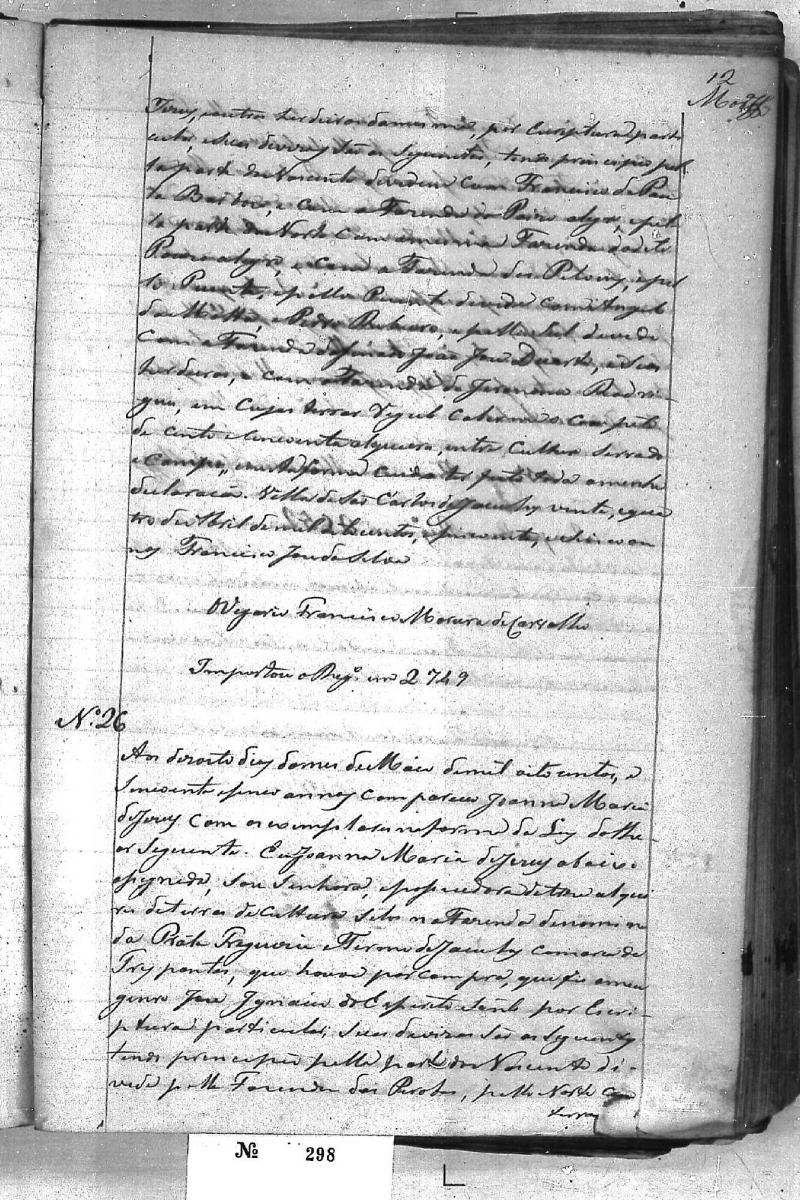 12
Jesus, e outros herdeiros da mesma, por Escriptura parti
cular, e suas divizas são as seguintes, tendo principio pel
la parte do Nascente divedem com Francisco de Pau
la Bastos, e com a Fazenda do Pouso alegre, e pel
la parte do Norte com a mesma Fazenda do dito
Pouso alegre, e com a Fazenda das Pitomas, e pel
lo Puente, e pello Puente devide com Angelo
da Motta, e Pedro Ribeiro, e pello Sul devede
com a Fazenda do finado João José Duarte, e seus
herdeiros, e com a Fazenda de Jeronimo Rodri
gues, em cujas terras
de cento e cincoenta alqueires, entre cultura serrado
e campos, e nesta forma ter feito toda a minha
declaração. Villa de São Carlos de Jacuhy vinte, e qua
tro de Abril de mil oitocentos, e cincoenta, e cinco an
nos Francisco José da Silva
O Vigario Francisco Moreira de Carvalho
Importou o Reg.º em 2749
N.º 26
Aos dezoito dias do mes de Maio de mil oito centos, e
sincoenta e sinco annos compareceo Joanna Maria
de Jesus com os exemplares na forma da Ley do the
or seguinte. Eu Joanna Maria de Jesus abaixo
assignada, sou Senhora, e possuidora de trez alquei
res de terras de cultura sitos na Fazenda denomina
da Prata Freguezia e Termo de Jacuhy comarca de
Trez pontas, que houve por compra, que fis a meu
genro José Ignacio do Espirito Santo por Escri
ptura particular, suas divizas são as seguintes
tendo principio pella parte do Nascente di-
vede pella Fazenda das Perobas, pello Norte com
terras
Nº 298